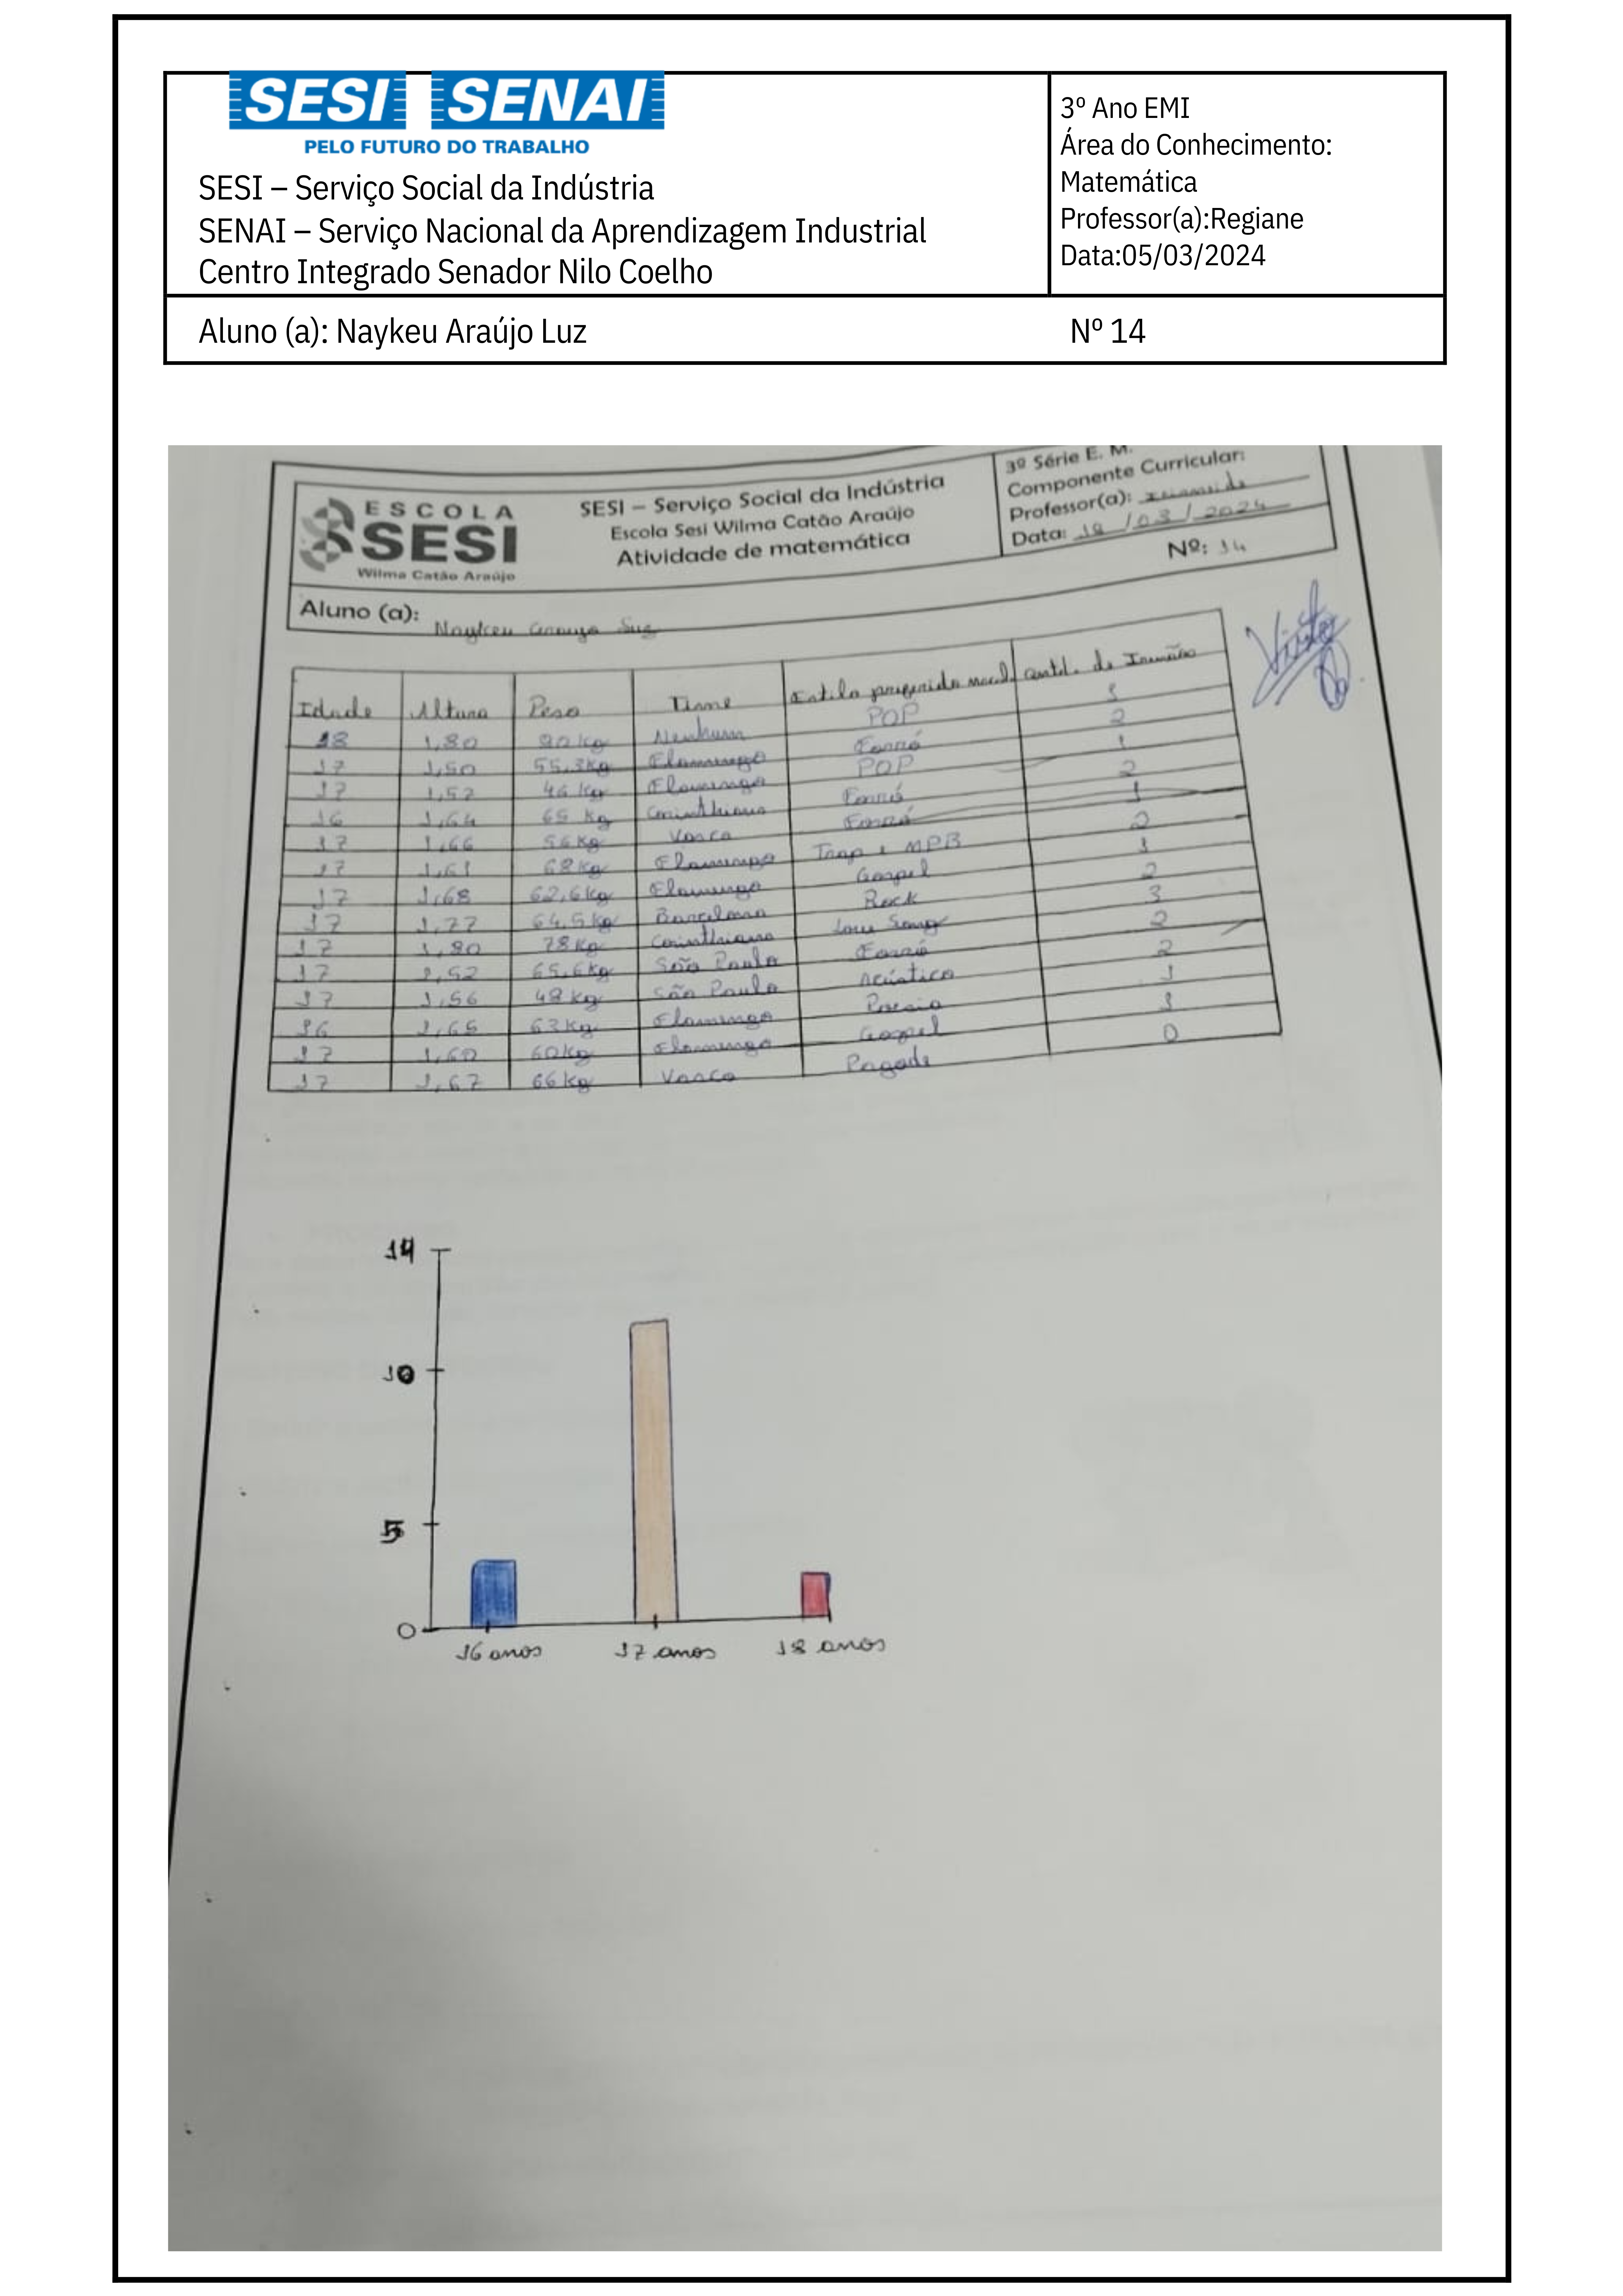 SESI SENAI
PELO FUTURO DO TRABALHO
SESI – Serviço Social da Indústria
SENAI – Serviço Nacional da Aprendizagem Industrial
Centro Integrado Senador Nilo Coelho
3º Ano EMI
Área do Conhecimento:
Matemática
Professor(a):Regiane
Data:05/03/2024
Aluno (a): Naykeu Araújo Luz Nº 14
ESCOLA
SESI
Wilma Catão Araújo
SESI – Serviço Social da Indústria
Escola Sesi Wilma Catão Araújo
Atividade de matemática
3ª Série E. M.
Componente Curricular:
Professor(a):
Data: 18/03/2024
Nº: 14
Aluno (a): Naykeu Araujo Luz
Visto
Idade Altura Peso Time Estilo preferido Quntd. de Irmãos
18 1,80 90kg Nenhum POP 1
17 1,50 55,3kg Flamengo Forró 2
17 1,57 46kg Flamengo POP 1
16 1,64 65kg Corinthians Forró 2
17 1,66 56kg Vasco Forró 1
17 1,61 68kg Flamengo Trap e MPB 2
17 1,68 62,6kg Flamengo Gospel 1
17 1,77 64,5kg Barcelona Rock 2
17 1,80 78kg Corinthians Love Song 3
17 1,52 65,6kg São Paulo Forró 2
17 1,56 48kg São Paulo Acústico 2
16 1,65 63kg Flamengo Poesia 1
17 1,60 60kg Flamengo Gospel 1
17 1,67 66kg Vasco Pagode 0
14
10
5
0
16 anos 17 anos 18 anos